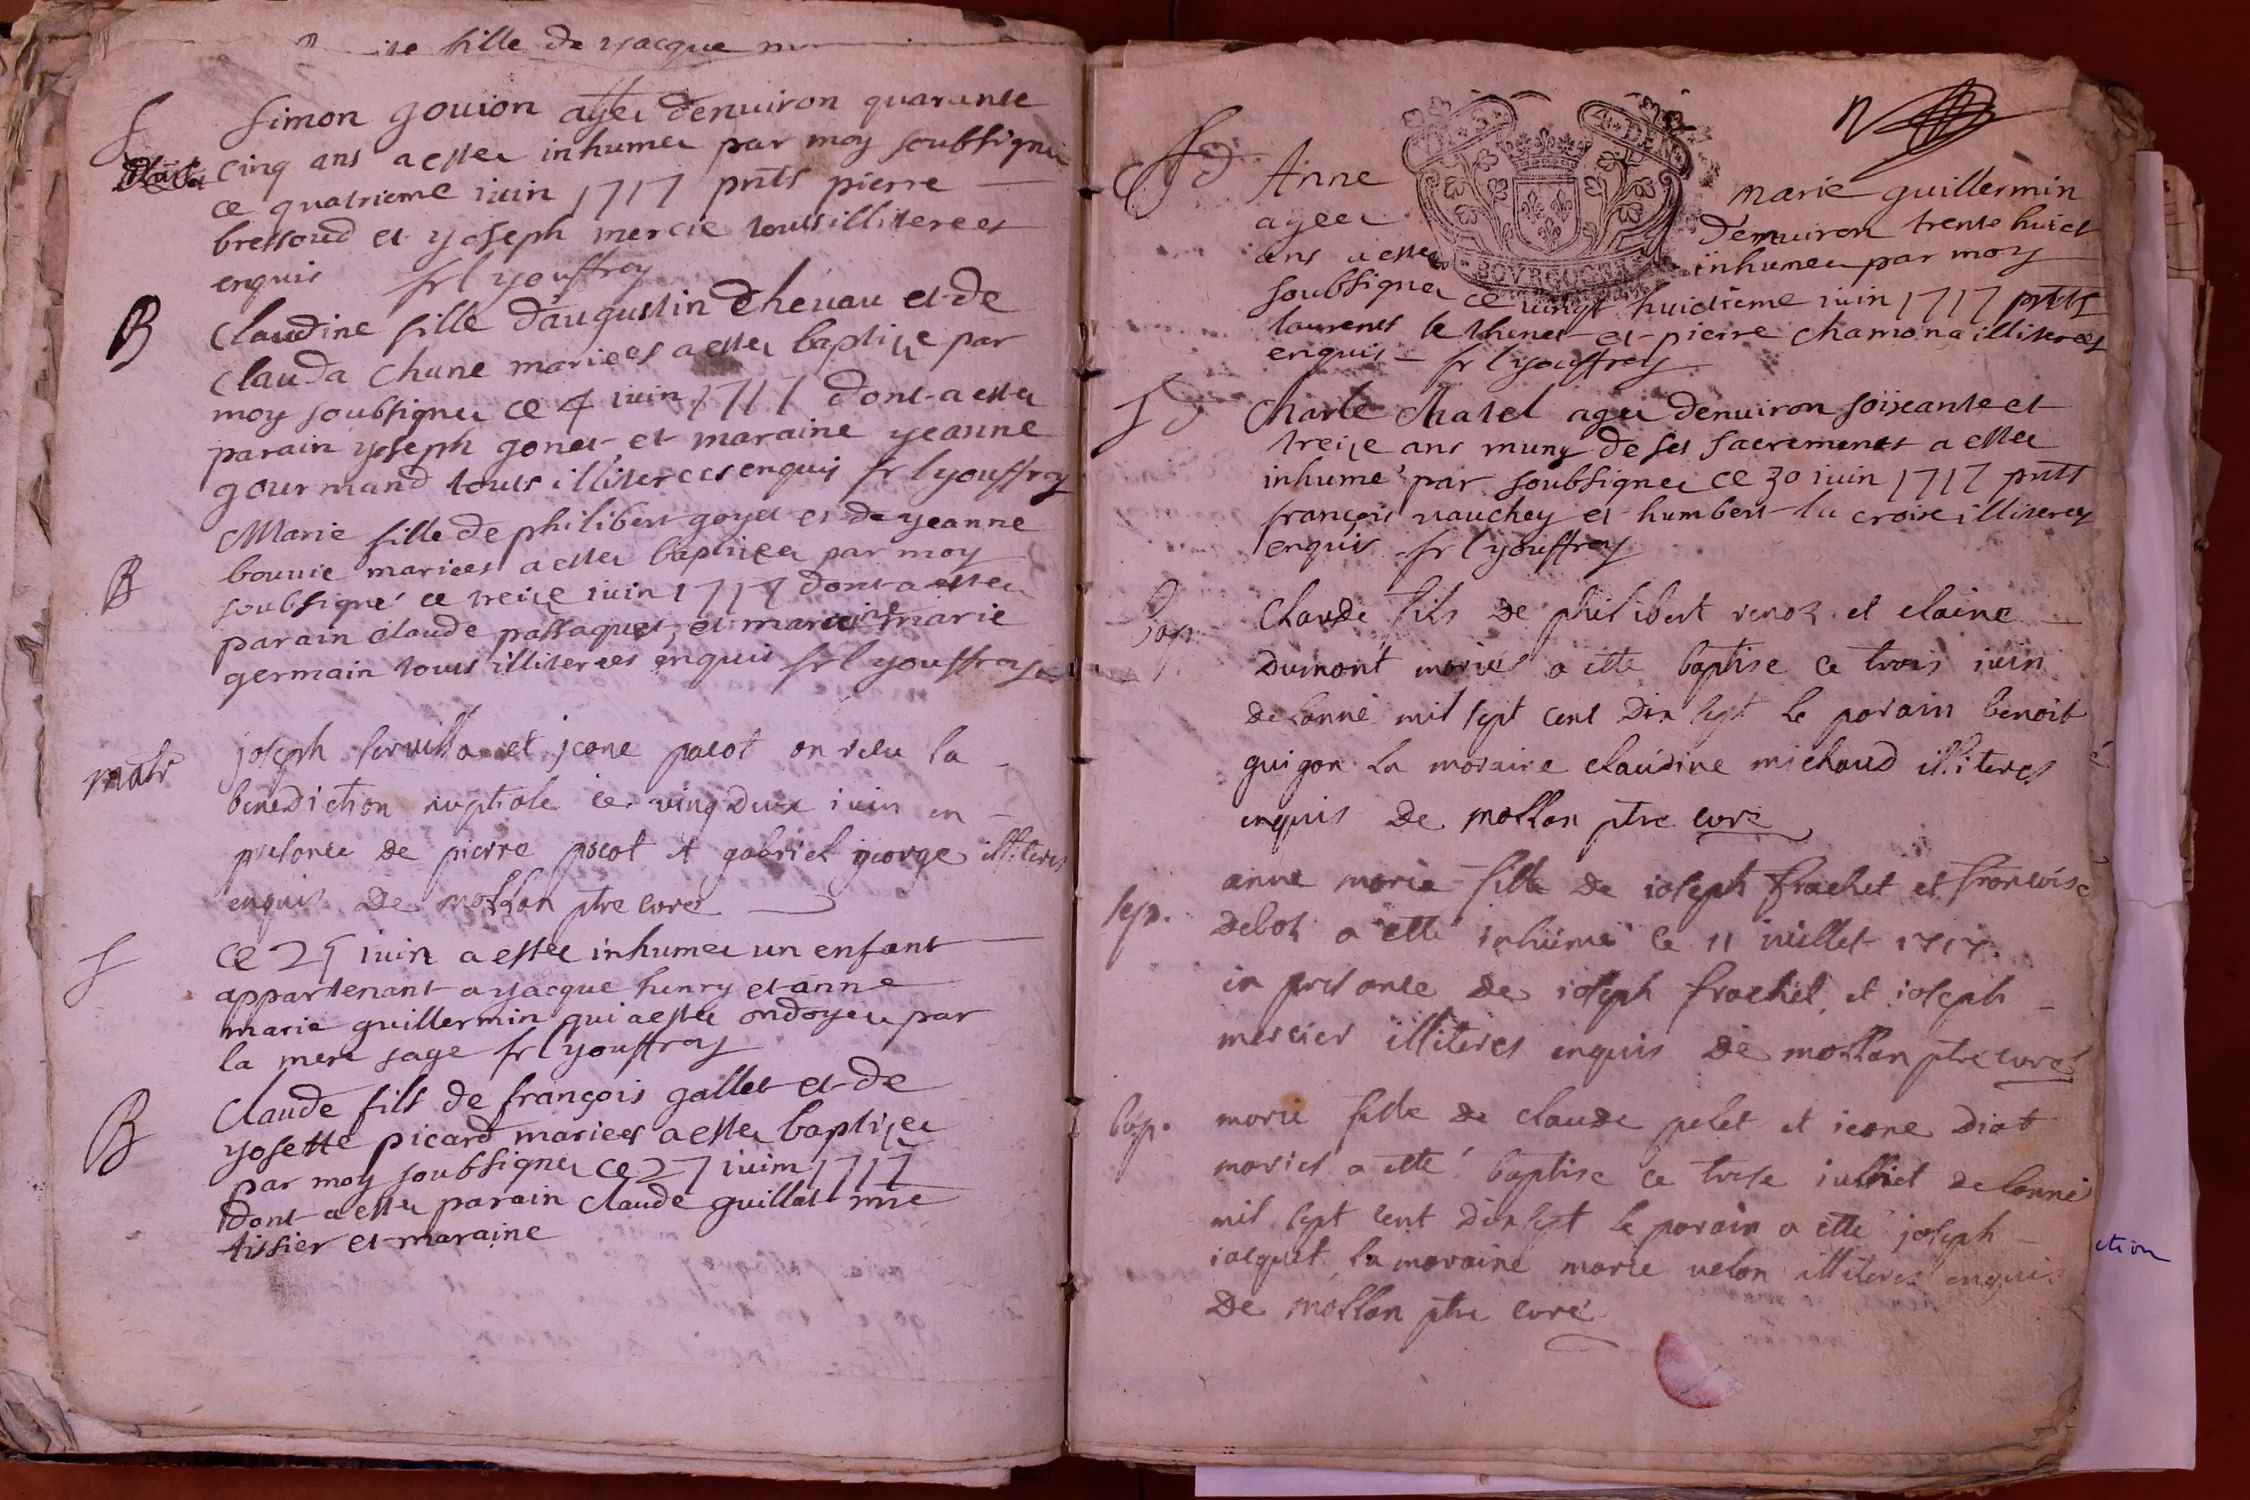 fille de yacque
S
Simon gouion agéz denuiron quarante
cinq ans a estez inhumez par moy soubsignez
ce quatrieme iuin 1717 pnts pierre
bressoud et yoseph mercie tous illiterees
enquis fr l youffroy
B
Claudine fille d'augustin Cheuau et de
clauda Chune mariees a estez baptize par
moy soubsignez ce 4 iuin 1717 dont a estez
parain yoseph gonet et maraine yeanne
gourmand tous illiterees enquis fr l youffroy
B
Marie fille de philibert goyet et de yeanne
bouuie mariees a estez baptizez par moy
soubsigné ce treize iuin 1717 dont a estez
parain claude passaquet, et marie
germain tous illiterees enquis fr l youffroy
mats
joseph et jeane pacot on recu la
benediction nuptiale ce vingdeux iuin en
presance de pierre pacot et gabriel george illiteres
enquis De mollan ptre curé
S
ce 25 iuin a estez inhumez un enfant
appartenant a yacque henry et anne
marie guillermin qui a estez ondoyez par
la mere sage fr l youffroy
B
Claude fils de françois gallet et de
yosette picard mariees a estez baptizez
par moy soubsignez ce 27 iuin 1717
dont a estez parain claude guillat mre
tissier et maraine
n
BOVRGOGNE
Sd
Anne marie guillermin
ageez denuiron trente huict
ans a estez inhumez par moy
soubsignez ce vingt huictieme iuin 1717 pnts
laurens le thenet et pierre chamona illiterees
enquis fr l youffroy
Sd
Charle Chatel agez denuiron soixante et
treize ans muny de ses sacrements a estez
inhumé par soubsignez ce 30 iuin 1717 pnts
françois vauchey et humbert la croix illiterez
enquis fr l youffroy
bap.
Claude fils de philibert renos et claine
Dumont mariés a etté baptise ce trois iuin
de lanné mil sept cent dix sept le parain benoit
guigon la maraine claudine michaud illiteres
enquis De mollan ptre curé
sep.
anne marie fille de ioseph frachet et francoise
debos a etté inhumé le 11 iuillet 1717
in presance de ioseph frachet et ioseph
mercier illiteres enquis De mollan ptre curé
bap.
marie fille de claude pelet et ieane Diat
mariés a etté baptise ce trese iulliet de lanné
mil sept cent dix sept le parain a etté joseph
iacquet la maraine marie velon illiteres enquis
De mollan ptre curé
ction